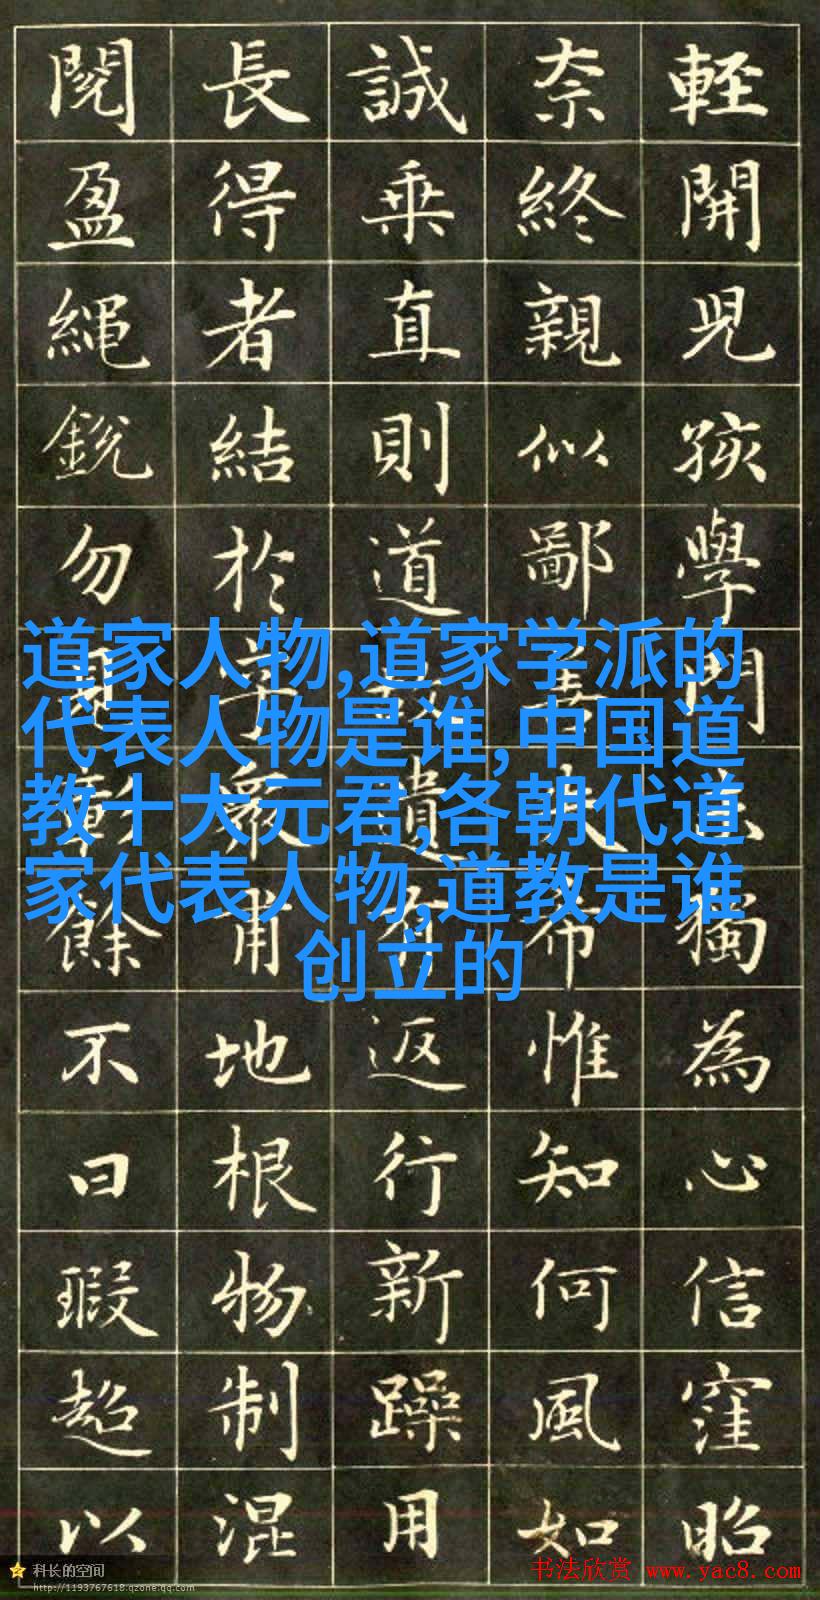 輕開兒孩學門獨為心信窪昭
奈終親似鄙善希惟知何風如
誠乗直則道遺返行新躁用
長得者結於衆甫地根物制混
閲盈繩銳勿餘不曰瑕超以
道家人物,道家学派的
代表人物是谁,中国道
教十大元君,各朝代道
家代表人物,道教是谁
创立的
科长的空间
http://1193767618.qzone.qq.com
书法欣赏 www.yac8.com